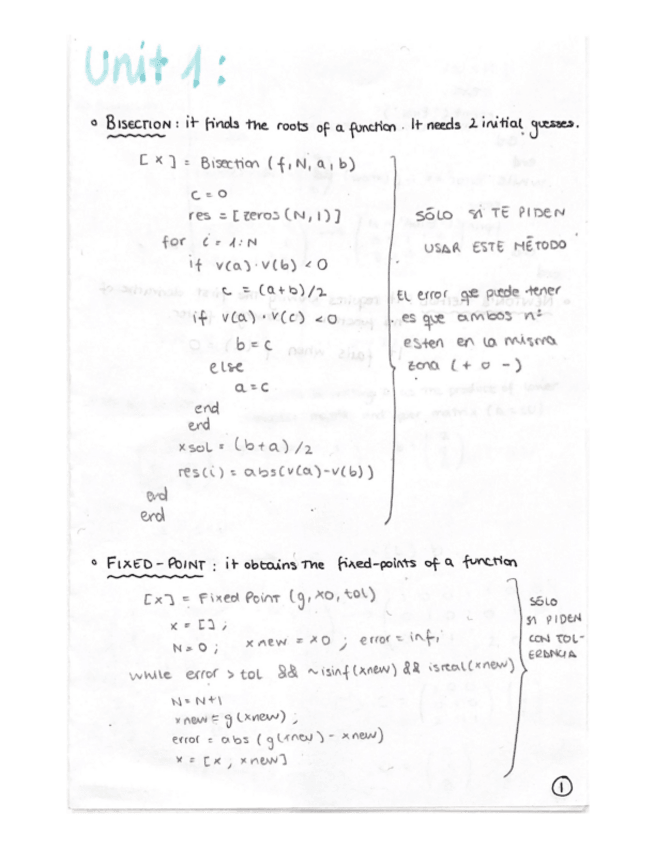 Unit 1:
° BISECTION: it finds the roots of a function. It needs 2 initial guesses.
[x] = Bisection (f, N, a, b)
c = 0
res = [zeros(N,1)]
for i = 1:N
if v(a)·v(b) < 0
c = (a+b)/2
if v(a)·v(c) < 0
b = c
else
a = c
end
end
xsol = (b+a)/2
res(i) = abs(v(a)-v(b))
end
end
SÓLO SI TE PIDEN
USAR ESTE MÉTODO
El error que puede tener
es que ambos nº
esten en la misma
zona (+ o -)
° FIXED-POINT: it obtains the fixed-points of a function
[x] = Fixed Point (g, x0, tol)
x = [];
N = 0; xnew = x0; error = inf;
while error > tol && ~isinf(xnew) && isreal(xnew)
N = N+1
xnew = g(xnew);
error = abs (g(xnew) - xnew)
x = [x, xnew]
SÓLO
SI PIDEN
CON TOL-
ERANCIA
1